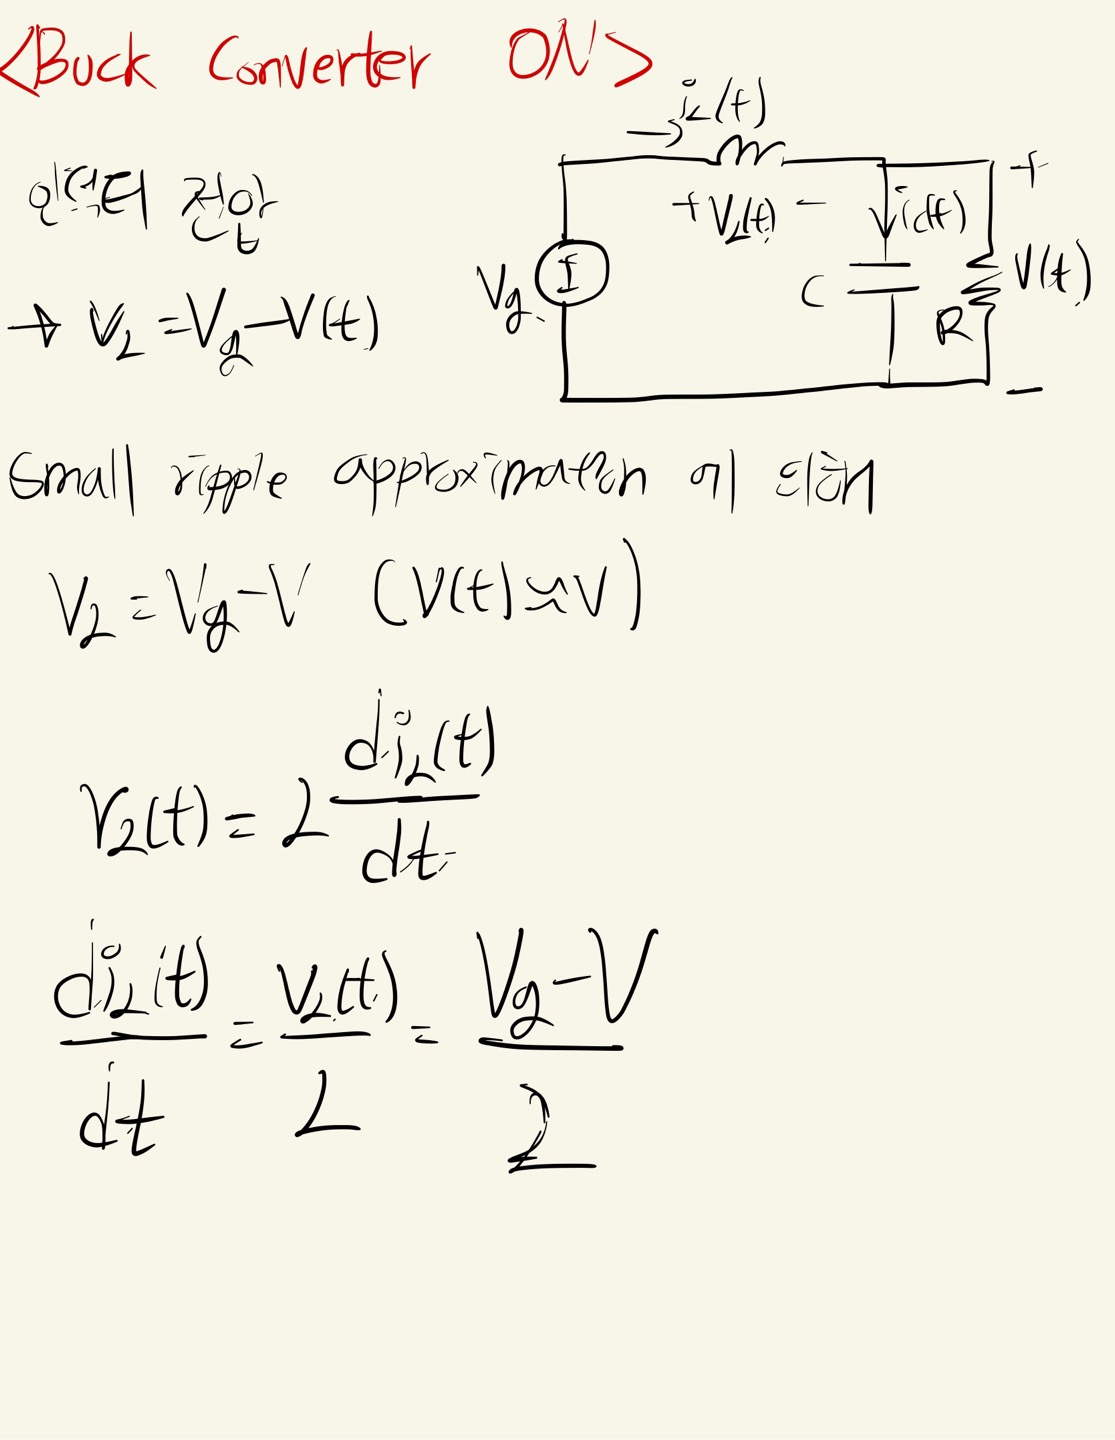 <Buck Converter ON>
i_L(t)
인덕터 전압
+ V_L(t) -
i_c(t)
+
V_g
C
R
V(t)
-
→ V_L = V_g - V(t)
Small ripple approximation 에 의해
V_L = V_g - V (V(t) ≈ V)
V_L(t) = L di_L(t)/dt
di_L(t)/dt = V_L(t)/L = V_g - V/L